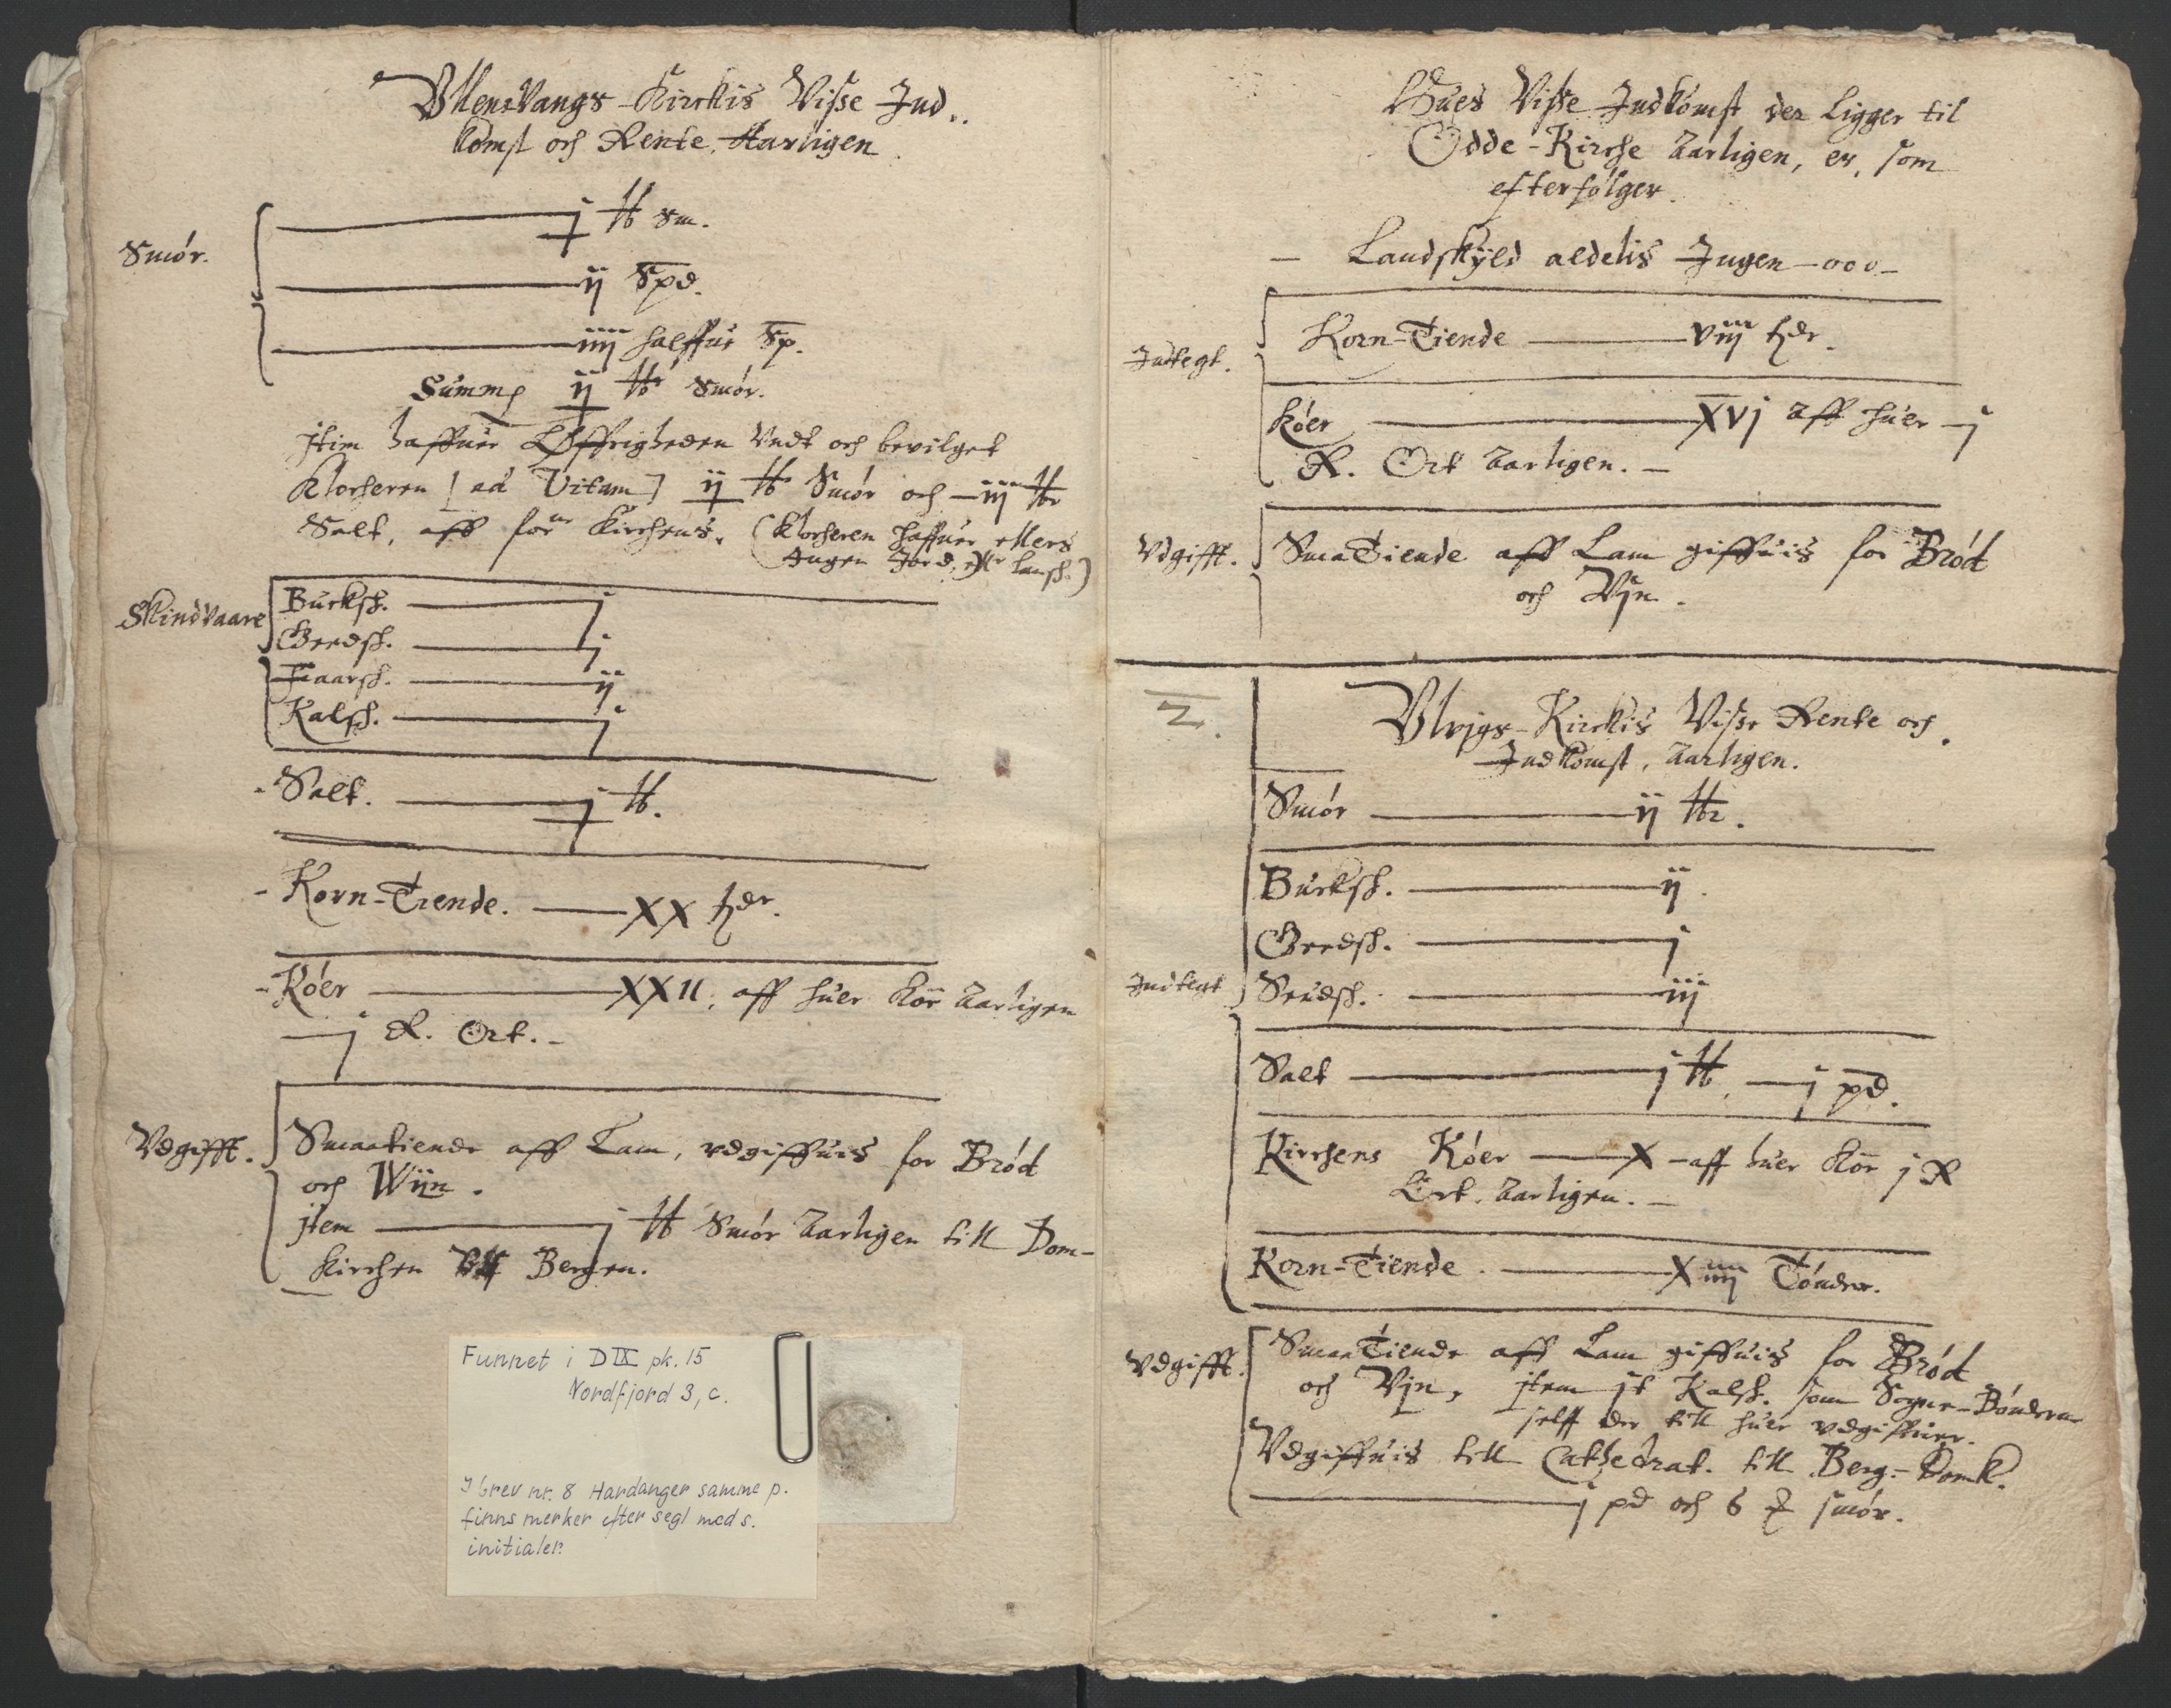 Vllensvangs-Kirckis Visse Ind..
komst och Rente Aarligen.
Smór.
j tt sm.
ij Spd.
iiij halffue Sp.
Summa ij ttr Smór.
Jtim haffuer Øffrigheden Vndt och bevilget
Klocheren [ad Vitam] ij tt Smór och iij ttr
Salt, aff forne Kirchens. (Klocheren haffuer ellers
Ingen Jord, eller lansk.)
Skindvaare
Bucksk. j
Geedsk. j
Faarsk. ij
Kalsk. j
- Salt. j tt.
- Korn-Tiende. XX hdr.
- Kóer XXII, aff huer Kór Aarligen
j R. Ort. -
Vdgifft.
Smaatiende aff Lam, vdgiffuis for Bród
och Wijn.
jtem j tt Smór Aarligen till Dom-
kirchen till Bergen.
Funnet i D IX pk. 15
Nordfjord 3, c.
I brev nr. 8 Hardanger samme p.
finns merker efter segl med s.
initialer.
Hues Visse Indkomst der Ligger til
Odde-Kirche Aarligen, er, som
efterfólger.
- Landskyld aldelis Ingen -000-
Indtegt.
Korn-Tiende viij hdr.
Kóer XVj Aff huer j
R. Ort Aarligen. -
Vdgifft.
SmaaTiende aff Lam giffuis for Bród
och Vjn.
2.
Vlvigs-Kirckis Visse Rente och
Indkomst, Aarligen.
Smór ij ttr.
Bucksk. ij.
Geedsk. j
Indtegt
Seudsk. iij
Salt j tt, j pd.
Kirchens Kóer X - aff huer Kór j R
Ort. Aarligen. -
Korn-Tiende. Xiiij Tónder.
Vdgifft.
SmaaTiende aff Lam giffuis for Bród
och Vjn, jtem jt Kalsk. som Sogne-Bónderne
self der till huer vdgiffuer.
Vdgiffuis till Cathedrat. till Berg.-Domk.
j pd och 6 smór.